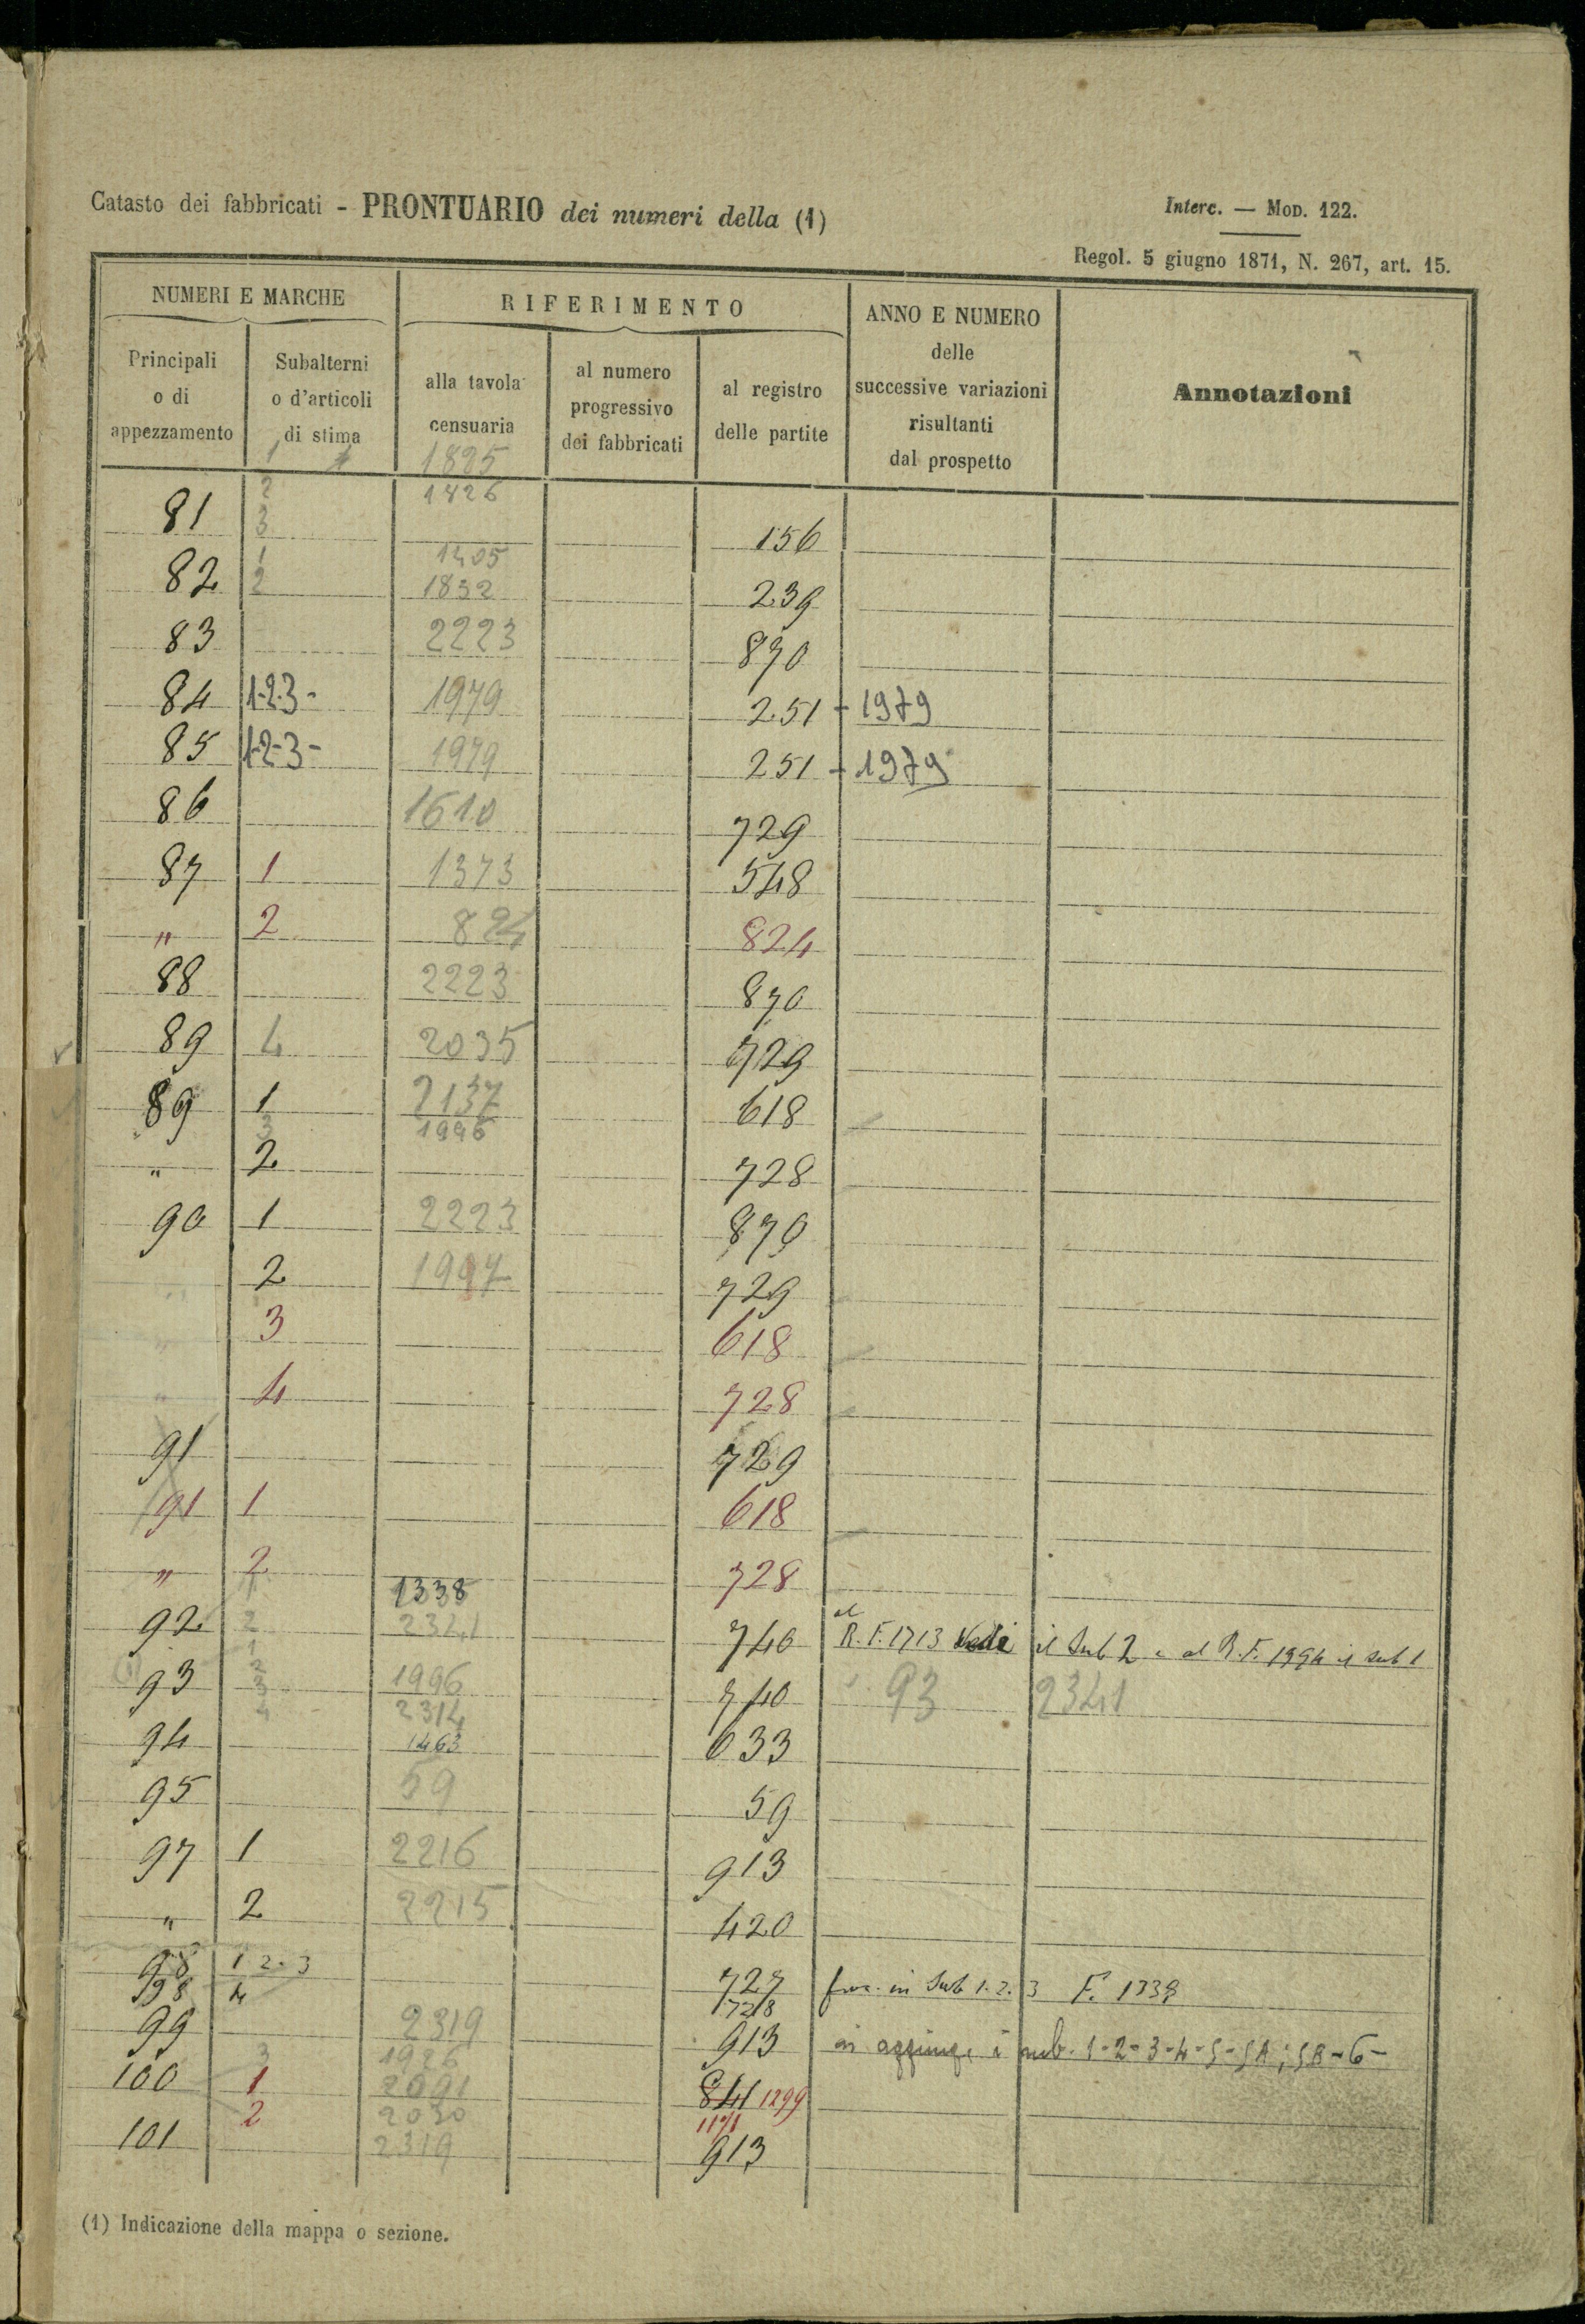 Catasto dei fabbricati - PRONTUARIO dei numeri della (1)
Interc. — Mod. 122.
Regol. 5 giugno 1871, N. 267, art. 15.
NUMERI E MARCHE
RIFERIMENTO
ANNO E NUMERO
delle
successive variazioni
risultanti
dal prospetto
Annotazioni
Principali
o di
appezzamento
Subalterni
o d'articoli
di stima
alla tavola
censuaria
al numero
progressivo
dei fabbricati
al registro
delle partite
1 1825
2 1826
81 3 156
1 1405
82 2 1832 239
83 2223 870
84 1-2-3- 1979 251 + 1979
85 1-2-3- 1979 251 + 1979
86 1610 729
87 1 1373 548
" 2 824 824
88 2223 870
89 4 2035 729
89 1 2137 618
3 1996
" 2 728
90 1 2223 870
" 2 1997 729
" 3 618
" 4 728
91 729
91 1 618
" 2 728
1 1338
92 2 2341 740 al R.F. 1713 Vedi il Sub 2 e al R.F. 1994 il sub 1
1
2
93 3 1996 740 93 2341
4 2314
94 1463 633
95 59 59
97 1 2216 913
" 2 2215 420
98 1 2 3 727 fraz. in Sub 1. 2. 3 F. 1339
98 4 1728
99 2319 913 si aggiunge i sub. 1-2-3-4-5-5A; 5B-6-
3 1926
100 1 2091 841 1299
2 2030 1171
101 2319 913
(1) Indicazione della mappa o sezione.